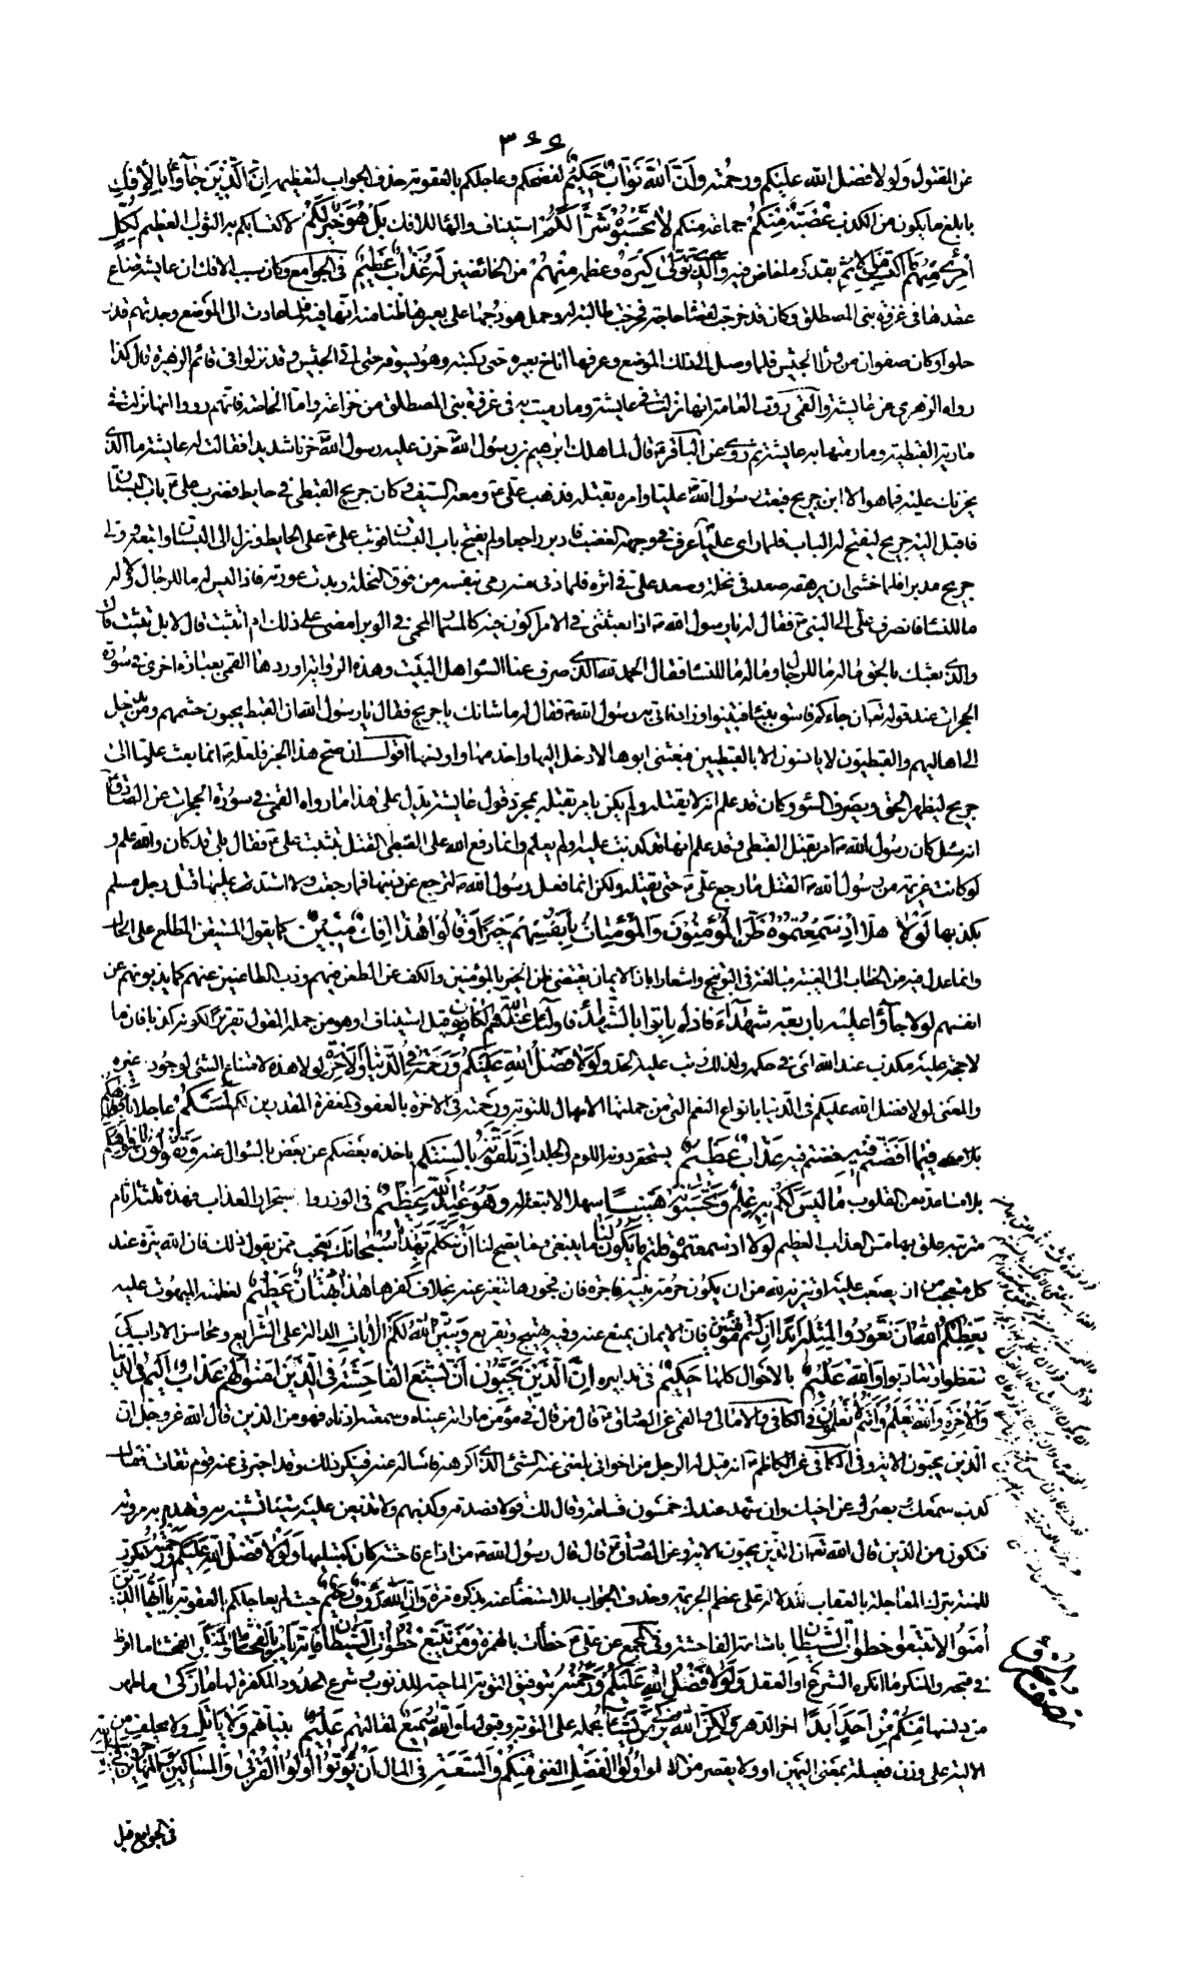 ٣٤٤
عن المقول وَلَوْلا فَضْلُ اللهِ عَلَيْكُمْ وَرَحْمَتُهُ وَأَنَّ اللهَ تَوَّابٌ حَكِيمٌ لفضحكم وعاجلكم بالعقوبة حذف الجواب لتعظيمه إِنَّ الَّذِينَ جاؤُا بِالْإِفْكِ
بابلغ ما يكون من الكذب عُصْبَةٌ مِنْكُمْ جماعة منكم لا تَحْسَبُوهُ شَرًّا لَكُمْ استيناف والهاء للافك بَلْ هُوَ خَيْرٌ لَكُمْ لاكتسابكم به الثواب العظيم لِكُلِّ
امْرِئٍ مِنْهُمْ مَا اكْتَسَبَ مِنَ الْإِثْمِ بقدر ما خاض فيه وَالَّذِي تَوَلَّى كِبْرَهُ معظمه مِنْهُمْ من الخائضين لَهُ عَذابٌ عَظِيمٌ في الجوامع وكان سبب الافك ان عايشة ضاع
عقدها في غزوة بني المصطلق وكان قد خرجت لقضاء حاجة فرجعت طالبة له وحمل هودجها على بعيرها ظنا منهم انها فيه فلما عادت الى الموضع وجدتهم قد
رحلوا وكان صفوان من وراء الجيش فلما وصل الى ذلك الموضع وعرفها اناخ بعيره حتى ركبته وهو يسوقه حتى اتى الجيش وقد نزلوا في قائم الظهيرة قال كذا
رواه الزهري عن عايشة والقمي روت العامة انها نزلت في عايشة وما رميت به في غزوة بني المصطلق من خزاعة واما الخاصة فانهم رووا انها نزلت في
مارية القبطية وما رمتها به عايشة ثم روى عن الباقر ع قال لما هلك ابرهيم بن رسول الله ص حزن عليه رسول الله ص حزنا شديدا فقالت له عايشة ما الذي
يحزنك عليه فما هو الا ابن جريح فبعث رسول الله ص عليا وامره بقتله فذهب علي ع ومعه السيف وكان جريح القبطي في حايط فضرب علي ع باب البستان
فاقبل اليه جريح ليفتح له الباب فلما راى عليا ع عرف في وجهه الغضب فادبر راجعا ولم يفتح باب البستان فوثب علي ع على الحايط ونزل الى البستان واتبعه وولى
جريح مدبرا فلما خشي ان يرهقه صعد في نخلة وصعد علي ع في اثره فلما دنى منه رمى بنفسه من فوق النخلة فبدت عورته فاذا ليس له ما للرجال ولا له
ما للنساء فانصرف علي ع الى النبي ص فقال له يا رسول الله ص اذا بعثتني في الامر اكون فيه كالمسمار المحمى في الوبر ام امضي على ذلك ام اتثبت قال لا بل تثبت قال
والذي بعثك بالحق ما له ما للرجال وما له ما للنساء فقال الحمد لله الذي صرف عنا السوء اهل البيت وهذه الرواية اوردها القمي بعبارة اخرى في سورة
الحجرات عند قوله تعالى ان جاءكم فاسق بنبأ فتبينوا وزاد فاتى به رسول الله ص فقال له ما شانك يا جريح فقال يا رسول الله ان القبط يجبون حشمهم ومن يدخل
الى اهاليهم والقبطيون لا يانسون الا بالقبطيين فبعثني ابوها لادخل اليها واخدمها واونسها اقول ان صح هذا الخبر فلعله ص انما بعث عليا ع الى
جريح ليظهر الحق ويصرف السوء وكان قد علم انه لا يقتله ولم يكن يامر بقتله بمجرد قول عايشة يدل على هذا ما رواه القمي في سورة الحجرات عن الصادق ع
انه سئل كان رسول الله ص امر بقتل القبطي وقد علم انها قد كذبت عليه او لم يعلم وانما دفع الله عن القبطي القتل بتثبت علي ع فقال بلى قد كان والله علم و
لو كانت عزيمة من رسول الله ص القتل ما رجع علي ع حتى يقتله ولكن انما فعل رسول الله ص لترجع عن ذنبها فما رجعت ولا اشتد عليها قتل رجل مسلم
بكذبها لَوْلا هلا إِذْ سَمِعْتُمُوهُ ظَنَّ الْمُؤْمِنُونَ وَالْمُؤْمِناتُ بِأَنْفُسِهِمْ خَيْراً وَقالُوا هذا إِفْكٌ مُبِينٌ كما يقول المستيقن المطلع على الحال
وانما عدل فيه من الخطاب الى الغيبة مبالغة في التوبيخ واشعارا بان الايمان يقتضي ظن الخير بالمؤمنين والكف عن الطعن فيهم وذب الطاعنين عنهم كما يذبونهم عن
انفسهم لَوْلا جاؤُا عَلَيْهِ بِأَرْبَعَةِ شُهَداءَ فَإِذْ لَمْ يَأْتُوا بِالشُّهَداءِ فَأُولئِكَ عِنْدَ اللهِ هُمُ الْكاذِبُونَ قيل استيناف او هو من جملة المقول تقريرا لكونه كذبا فان ما
لا حجة عليه مكذب عند الله اي في حكمه ولذلك رتب عليه الحد وَلَوْلا فَضْلُ اللهِ عَلَيْكُمْ وَرَحْمَتُهُ فِي الدُّنْيا وَالْآخِرَةِ لولا هذه لامتناع الشيء لوجود غيره
والمعنى لولا فضل الله عليكم في الدنيا بانواع النعم التي من جملتها الامهال للتوبة ورحمته في الاخرة بالعفو والمغفرة المقدرين لكم لَمَسَّكُمْ عاجلا
فِيما أَفَضْتُمْ فِيهِ خضتم فيه عَذابٌ عَظِيمٌ يستحقر دونه اللوم والجلد إِذْ تَلَقَّوْنَهُ بِأَلْسِنَتِكُمْ ياخذه بعضكم عن بعض بالسؤال عنه وَتَقُولُونَ بِأَفْواهِكُمْ
بلا مساعدة من القلوب ما لَيْسَ لَكُمْ بِهِ عِلْمٌ وَتَحْسَبُونَهُ هَيِّناً سهلا لا تبعة له وَهُوَ عِنْدَ اللهِ عَظِيمٌ في الوزر واستجرار العذاب فهذه ثلثة اثام
مترتبة علق بها مس العذاب العظيم وَلَوْلا إِذْ سَمِعْتُمُوهُ قُلْتُمْ ما يَكُونُ لَنا ما ينبغي وما يصح لنا أَنْ نَتَكَلَّمَ بِهذا سُبْحانَكَ تعجب ممن يقول ذلك فان الله ينزه عند
كل متعجب من ان يصعب عليه او تنزيه لله من ان يكون حرمة نبيه فاجرة فان فجورها تنفير عنه بخلاف كفرها هذا بُهْتانٌ عَظِيمٌ لعظمة المبهوت عليه
يَعِظُكُمُ اللهُ أَنْ تَعُودُوا لِمِثْلِهِ أَبَداً إِنْ كُنْتُمْ مُؤْمِنِينَ فان الايمان يمنع عنه وفيه تهييج وتقريع وَيُبَيِّنُ اللهُ لَكُمُ الْآياتِ الدالة على الشرايع ومحاسن الاداب كي
تتعظوا وتتادبوا وَاللهُ عَلِيمٌ بالاحوال كلها حَكِيمٌ في تدابيره إِنَّ الَّذِينَ يُحِبُّونَ أَنْ تَشِيعَ الْفاحِشَةُ فِي الَّذِينَ آمَنُوا لَهُمْ عَذابٌ أَلِيمٌ فِي الدُّنْيا
وَالْآخِرَةِ وَاللهُ يَعْلَمُ وَأَنْتُمْ لا تَعْلَمُونَ في الكافي والامالي والقمي عن الصادق ع قال من قال في مؤمن ما راته عيناه وسمعته اذناه فهو من الذين قال الله عز وجل ان
الذين يحبون الاية وفي الكافي عن الكاظم ع انه قيل له الرجل من اخواني يبلغني عنه الشيء الذي اكرهه فاسأله عنه فينكر ذلك وقد اخبرني عنه قوم ثقات فقال
كذب سمعك وبصرك عن اخيك وان شهد عندك خمسون قسامة وقال لك قولا فصدقه وكذبهم ولا تذيعن عليه شيئا تشينه به وتهدم به مروته
فتكون من الذين قال الله تعالى ان الذين يحبون الاية وعن الصادق ع قال قال رسول الله ص من اذاع فاحشة كان كمبتدئها وَلَوْلا فَضْلُ اللهِ عَلَيْكُمْ وَرَحْمَتُهُ تكرير
للمنة بترك المعاجلة بالعقاب للدلالة على عظم الجريمة وحذف الجواب للاستغناء عنه بذكره مرة وَأَنَّ اللهَ رَؤُفٌ رَحِيمٌ حيث لم يعاجلكم بالعقوبة يا أَيُّهَا الَّذِينَ
آمَنُوا لا تَتَّبِعُوا خُطُواتِ الشَّيْطانِ باشاعة الفاحشة وفي المجمع عن علي ع خطات بالهمزة وَمَنْ يَتَّبِعْ خُطُواتِ الشَّيْطانِ فَإِنَّهُ يَأْمُرُ بِالْفَحْشاءِ وَالْمُنْكَرِ الفحشاء ما افرط
في قبحه والمنكر ما انكره الشرع او العقل وَلَوْلا فَضْلُ اللهِ عَلَيْكُمْ وَرَحْمَتُهُ بتوفيق التوبة الماحية للذنوب وشرع الحدود المكفرة لها ما زَكى ما طهر
من دنسها مِنْكُمْ مِنْ أَحَدٍ أَبَداً اخر الدهر وَلكِنَّ اللهَ يُزَكِّي مَنْ يَشاءُ بحمله على التوبة وقبولها وَاللهُ سَمِيعٌ لمقالتهم عَلِيمٌ بنياتهم وَلا يَأْتَلِ ولا يحلف من
الالية على وزن فعيلة بمعنى اليمين او ولا يقصر من الالو أُولُوا الْفَضْلِ الغنى مِنْكُمْ وَالسَّعَةِ في المال أَنْ يُؤْتُوا أُولِي الْقُرْبى وَالْمَساكِينَ وَالْمُهاجِرِينَ
في الجوامع قيل